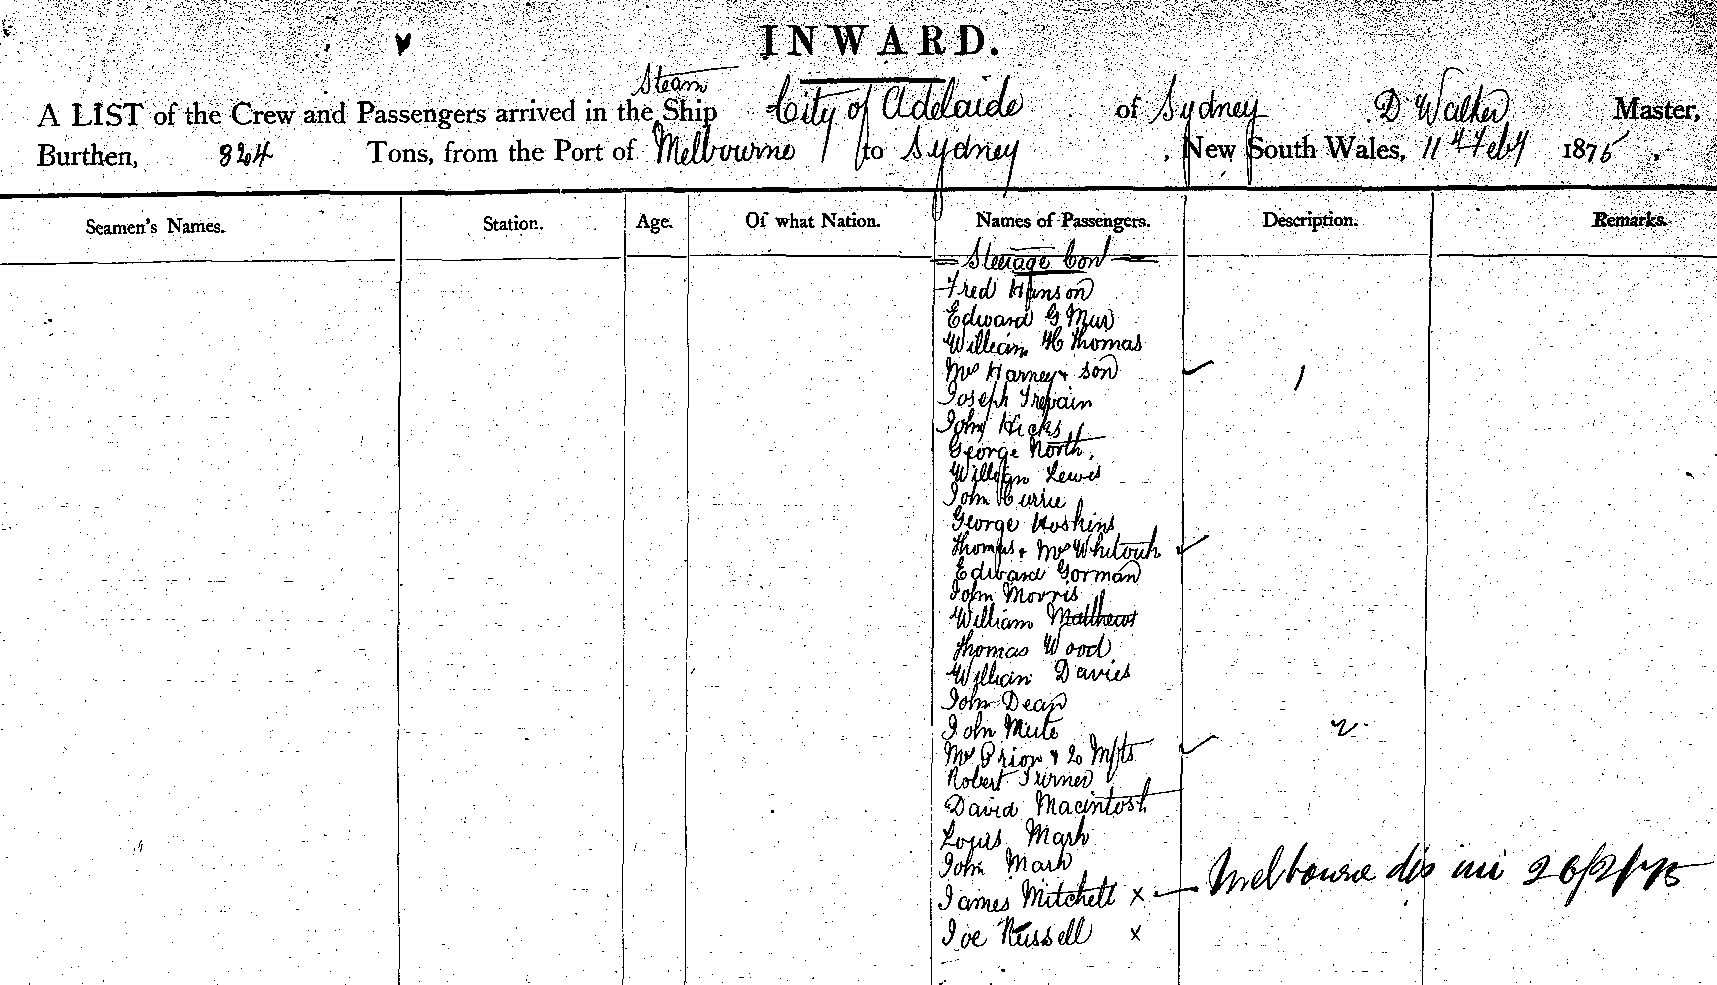 INWARD.
Steam
A LIST of the Crew and Passengers arrived in the Ship City of Adelaide of Sydney D Walker Master,
Burthen, 824 Tons, from the Port of Melbourne to Sydney , New South Wales, 11th Feby 1875 .
Seamen's Names. Station. Age. Of what Nation. Names of Passengers. Description. Remarks.
Steerage Con
Fred Hanson
Edward G
William H Thomas
Mrs Harney + son 1
Joseph Trevain
John Hicks
George North.
William Lewis
John Currie
George Hoskins
Thomas + Mrs
Edward Gorman
John Morris
William Matthews
Thomas Wood
William Davies
John Dean
John 2
Mrs Prior + 2 Infts
Robert Turner
David Macintosh
Louis Mark
John Mark
James Mitchell x Melbourne dis 26/2/75
Joe Russell x